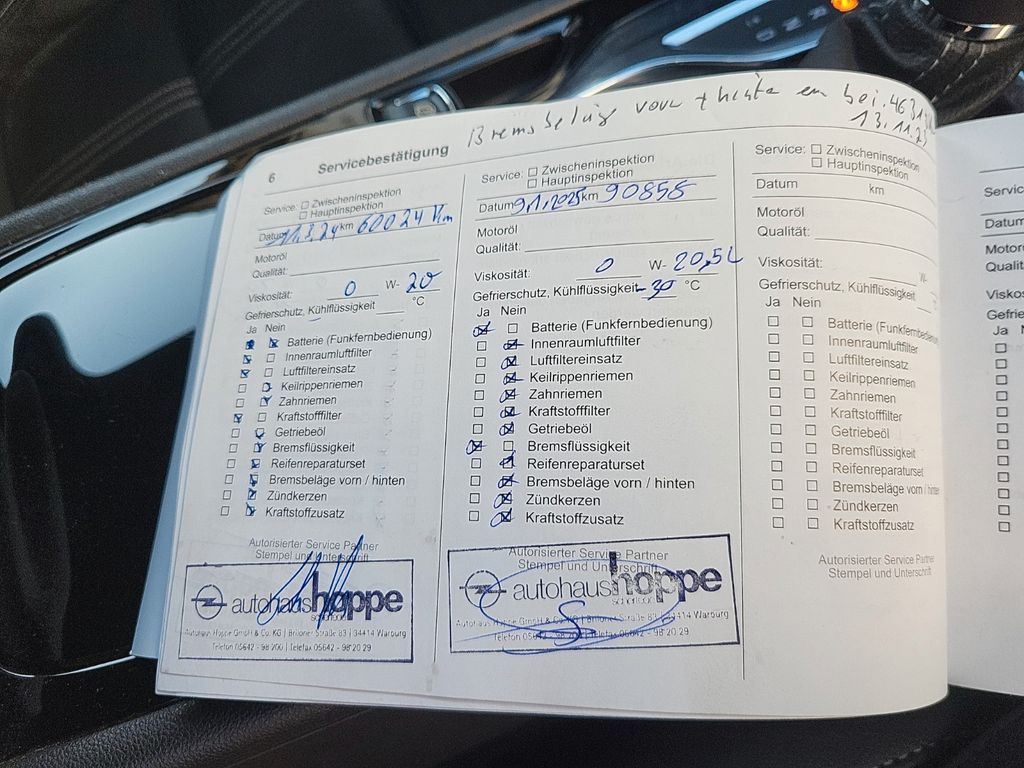 Bremsbeläg vorn + hinten bei 4631
13.11.23
6 Servicebestätigung
Service: Zwischeninspektion
Hauptinspektion
Datum 11.3.24 km 60024 Km
Motoröl
Qualität:
Viskosität: 0 W- 20
Gefrierschutz, Kühlflüssigkeit °C
Ja Nein
Batterie (Funkfernbedienung)
Innenraumluftfilter
Luftfiltereinsatz
Keilrippenriemen
Zahnriemen
Kraftstofffilter
Getriebeöl
Bremsflüssigkeit
Reifenreparaturset
Bremsbeläge vorn / hinten
Zündkerzen
Kraftstoffzusatz
Autorisierter Service Partner
Stempel und Unterschrift
autohaus hoppe
Autohaus Hoppe GmbH & Co. KG | Briloner Straße 83 | 34414 Warburg
Telefon 05642 - 98 200 | Telefax 05642 - 98 20 29
Service: Zwischeninspektion
Hauptinspektion
Datum 9.1.2025 km 90855
Motoröl
Qualität:
Viskosität: 0 W- 20 5,5L
Gefrierschutz, Kühlflüssigkeit -30 °C
Ja Nein
Batterie (Funkfernbedienung)
Innenraumluftfilter
Luftfiltereinsatz
Keilrippenriemen
Zahnriemen
Kraftstofffilter
Getriebeöl
Bremsflüssigkeit
Reifenreparaturset
Bremsbeläge vorn / hinten
Zündkerzen
Kraftstoffzusatz
Autorisierter Service Partner
Stempel und Unterschrift
autohaus hoppe
Autohaus Hoppe GmbH & Co. KG | Briloner Straße 83 | 34414 Warburg
98 20 29
Service: Zwischeninspektion
Hauptinspektion
Datum km
Motoröl
Qualität:
Viskosität: W-
Gefrierschutz, Kühlflüssigkeit
Ja Nein
Batterie (Funkfernbedienung)
Innenraumluftfilter
Luftfiltereinsatz
Keilrippenriemen
Zahnriemen
Kraftstofffilter
Getriebeöl
Bremsflüssigkeit
Reifenreparaturset
Bremsbeläge vorn / hinten
Zündkerzen
Kraftstoffzusatz
Autorisierter Service Partner
Stempel und Unterschrift
Servic
Datum
Motor
Qualit
Visko
Gefrie
Ja N